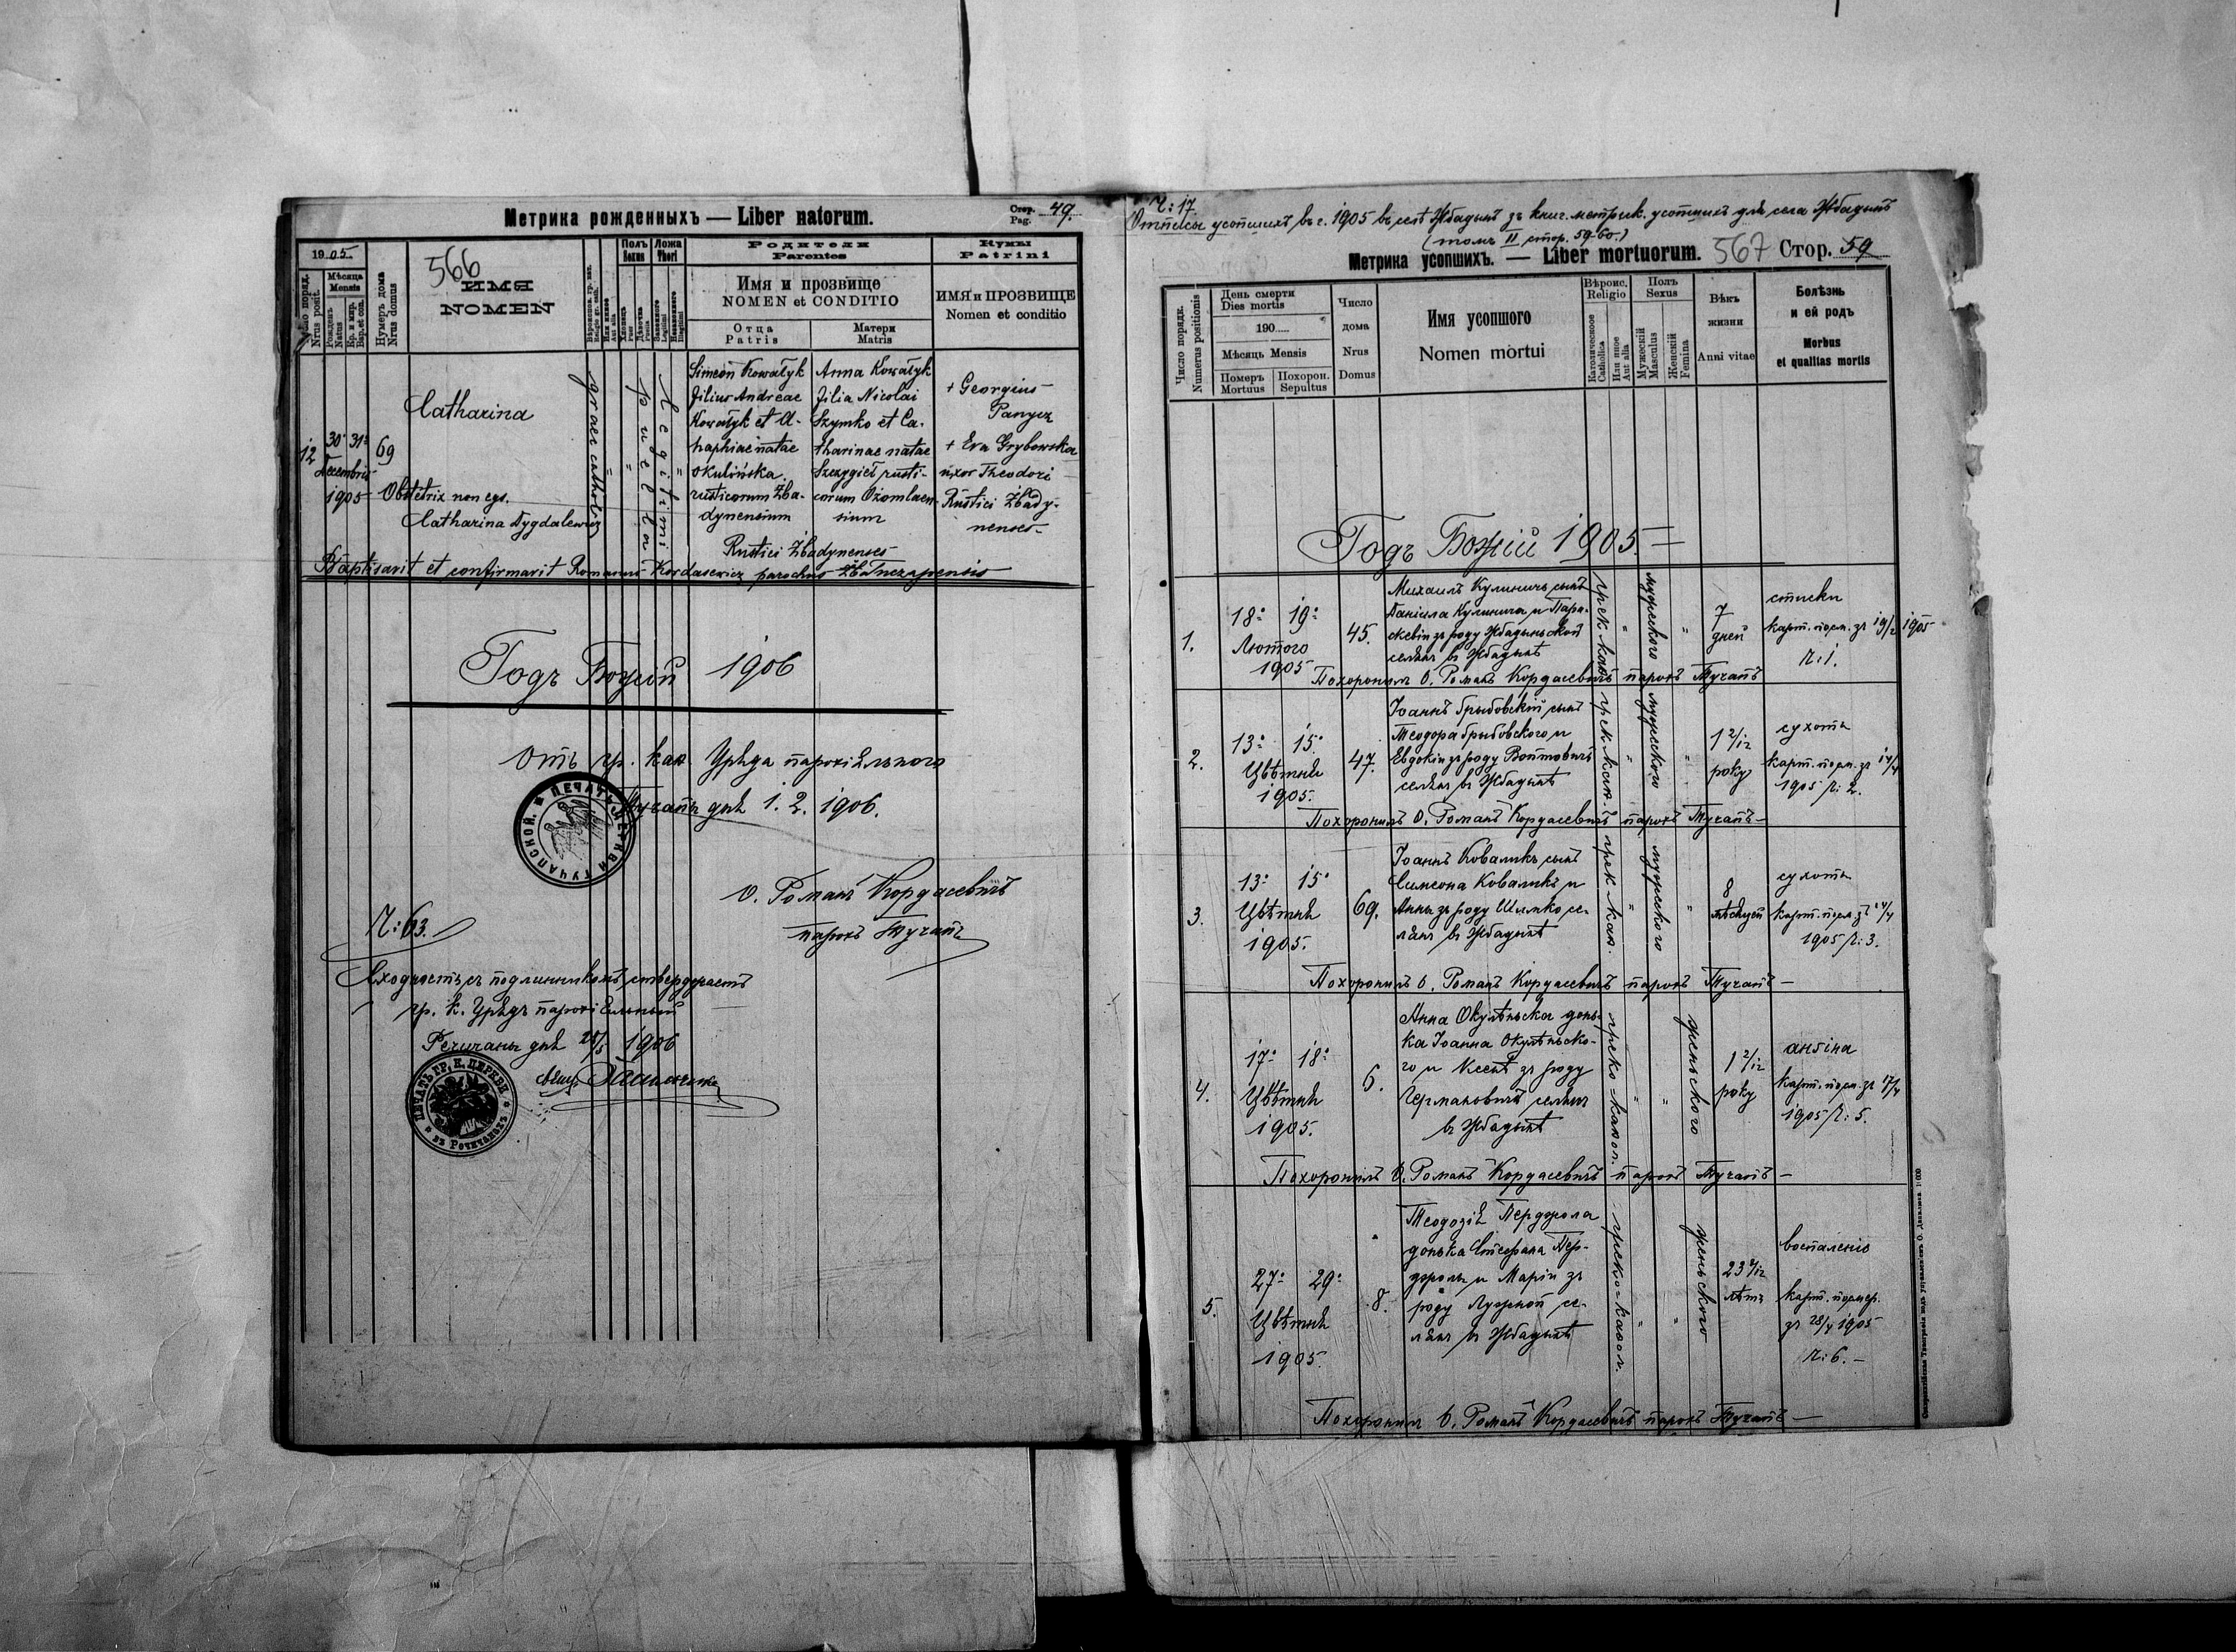 Метрика рожденныхъ — Liber natorum.
Стор. Pag. 49.
1905.
566
Число поряд. Nrus posit.
Мѣсяца Mensis
Рожденъ Natus
Кр. и мир. Bap. et con.
Нумеръ дома Nrus domus
ИМЯ
NOMEN
Полъ Sexus
Ложа Thori
Родители
Parentes
Имя и прозвище
NOMEN et CONDITIO
Отца
Patris
Матери
Matris
Кумы
Patrini
ИМЯ и ПРОЗВИЩЕ
Nomen et conditio
12
30· 31·
Decembris
1905
69
Catharina
Obstetrix non egs.
Catharina Dygdalewicz
graeci catholi
puella
Legitimi
Simeon Kowalyk
filius Andreae
Kowalyk et A-
haphiae natae
Okulińska.
rusticorum Zba-
dynensium
Anna Kowalyk
filia Nicolai
Szymko et Ca-
tharinae natae
Szczygieł rusti-
corum Ożomlaen-
sium
Rustici Zbadynenses
+ Georgius
Panycz
+ Eva Grybowska
uxor Theodori
Rustici Zbady-
nenses-
Baptisavit et confirmavit Romanus Kordasewicz parochus Tuczapensis
Годъ Божій 1906
Отъ гр. кат Уряда парохіяльного
Тучапы дня 1. 2. 1906.
ПЕЧАТЬ ЦЕРКВИ ТУЧАПСКОЙ.
О. Романъ Кордасевичъ
парохъ Тучапъ
Ч: 63.
Сходность съ подлинникомъ стверджаетъ
гр. к. Урядъ парохіяльный
Речичаны дня 28/5 1906
ПЕЧАТЬ ГР. К. ЦЕРКВИ въ Речичанохъ
Ч: 17
Отписы усопшихъ въ г. 1905 въ селѣ Жбадынѣ зъ книг. метрик. усопшихъ для села Жбадынѣ
(томъ II стор. 59-60.)
Метрика усопшихъ. — Liber mortuorum. 567 Стор. 59
Число порядк.
Numerus positionis
День смерти
Dies mortis
190
Мѣсяць Mensis
Померъ Mortuus
Похорон. Sepultus
Число
дома
Nrus
Domus
Имя усопшого
Nomen mortui
Вѣроис.
Religio
Католическое Catholica
Или иное Aut alia
Полъ
Sexus
Мужескій Masculus
Женскій Femina
Вѣкъ
жизни
Anni vitae
Болѣзнь
и ей родъ
Morbus
et qualitas mortis
Годъ Божій 1905 —
1.
18· 19·
Лютого
1905
45.
Михаилъ Кулиничъ сынъ
Даніила Кулинича и Пара-
скевіи зъ роду Жбадыньской
селянъ въ Жбадынѣ
грек. кат.
мужеского
7
дней
стиски
карт. посм. зъ 19/2 1905
Ч: 1.
Похоронилъ О. Романъ Кордасевичъ парохъ Тучапъ
2.
13· 15·
Цвѣтня
1905.
47.
Іоаннъ Грыбовскій сынъ
Теодора Грыбовского и
Евдокіи зъ роду Войтовичъ
селянъ въ Жбадынѣ
грек. кат.
мужеского
1 2/12
року
сухоты
карт. посм. зъ 14/4
1905 Ч: 2.
Похоронилъ О. Романъ Кордасевичъ парохъ Тучапъ —
3.
13· 15·
Цвѣтня
1905.
69.
Іоаннъ Коваликъ сынъ
Симеона Коваликъ и
Анны зъ роду Шимко се-
лянъ въ Жбадынѣ
грек. кат.
мужеского
8
мѣсяцей
сухоты
карт. посм. зъ 14/4
1905 Ч: 3.
Похоронилъ О. Романъ Кордасевичъ парохъ Тучапъ —
4.
17· 18·
Цвѣтня
1905.
6.
Анна Окулѣньска донь-
ка Іоанна Окулѣньско-
го и Ксенѣ зъ роду
Германовичъ селянъ
въ Жбадынѣ
греко-катол.
женьского
1 2/12
року
ангіна
карт. посм. зъ 17/4
1905 Ч: 5.
Похоронилъ О. Романъ Кордасевичъ парохъ Тучапъ —
5.
27· 29·
Цвѣтня
1905.
8.
Теодозія Перджола
донька Стефана Пер-
джолы и Маріи зъ
роду Лужной се-
лянъ въ Жбадынѣ
греко-катол.
женьского
лѣтъ
воспаленіе
карт. посмер.
зъ 28/4 1905
Ч: 6. —
Похоронилъ О. Романъ Кордасевичъ парохъ Тучапъ —